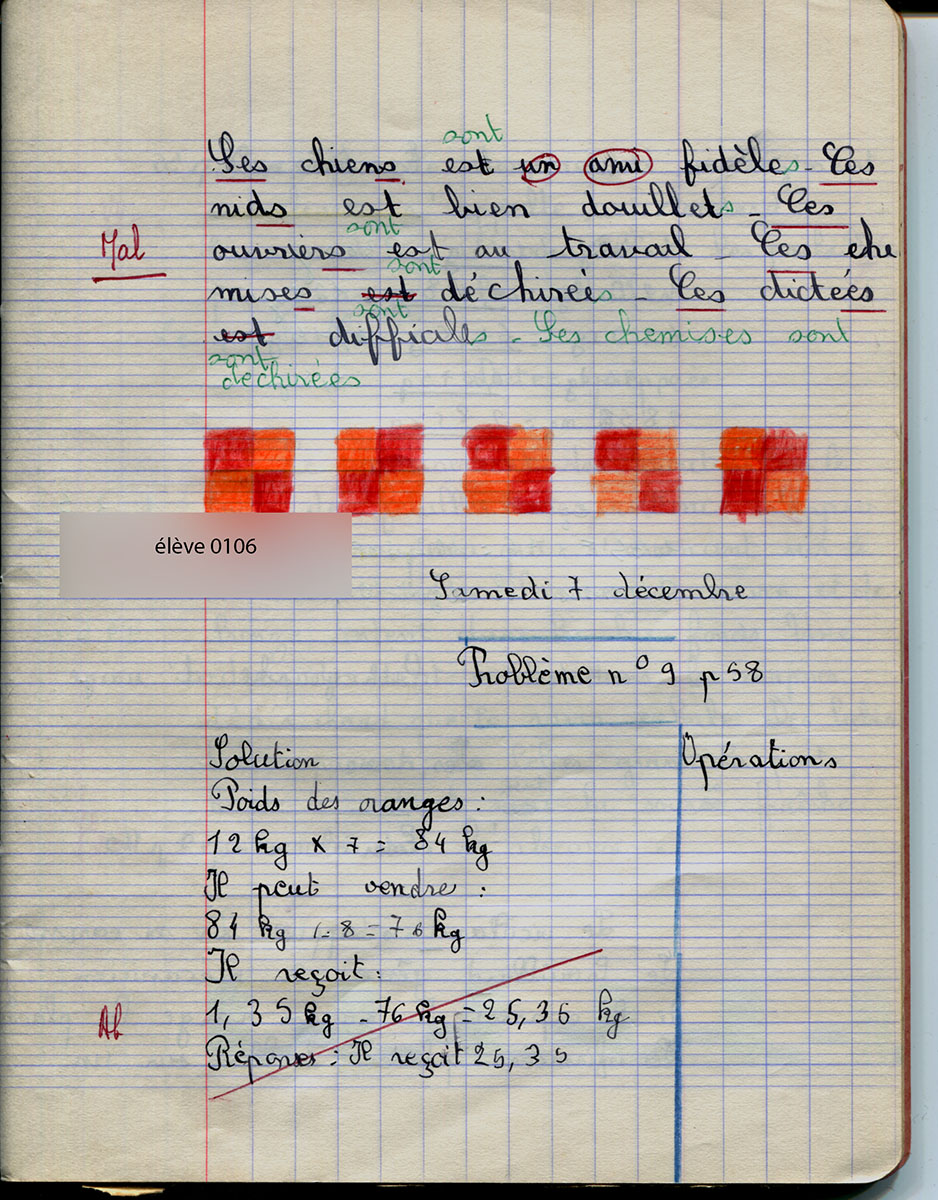 sont
Les chiens est un ami fidèles. Les
nids est bien douillets. Les
sont
Mal
ouvriers est au travail. Les che
sont
mises est déchirées. Les dictées
sont
est difficiles. Les chemises sont
sont
déchirées
élève 0106
Samedi 7 décembre
Problème n° 9 p 58
Solution
Opérations
Poids des oranges :
12 kg × 7 = 84 kg
Il peut vendre :
84 kg - 8 = 76 kg
Il reçoit :
Ab
1,35 kg - 76 kg = 25,35 kg
Réponses : Il reçoit 25,35